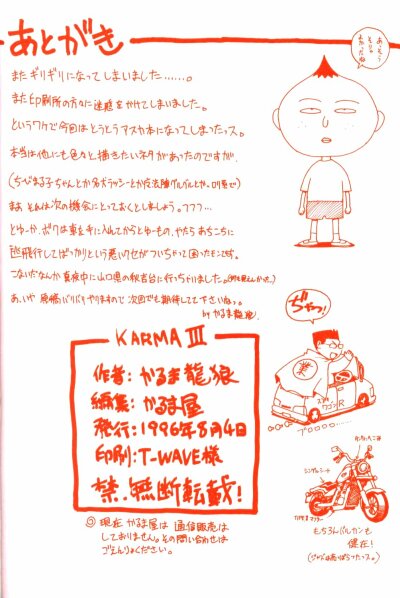 あとがき
またギリギリになってしまいました……。
また印刷所の方々に迷惑をかけてしまいました。
というワケで今回はとうとうアスカ本になってしまったっス。
本当は他にも色々と描きたいネタがあったのですが、
(ちびまる子ちゃんとか名犬ラッシーとか
まぁ それは次の機会にとっておくとしましょう。フフフ…
とゆーか、ボクは車を手に入れてからとゆーもの、やたらあちこちに
ってばっかりという悪いクセがついちゃって困ったモンです。
こないだなんか真夜中に山口県の秋吉台に行っちゃいました。(何も見えんかった…)
あ、いや 原稿バリバリやりますので次回でも期待してて下さいね。
by かるま龍狼.
ぢゃっ!
KARMA III
作者:かるま龍狼
編集:かるま屋
発行:1996年8月4日
印刷:T-WAVE様
禁.無断転載!
◎ 現在 かるま屋は 通信販売は
しておりません。その問い合わせは
ごえんりょください。
業
スズキ
ワゴンR
プロロロ……
シングルシート
マフラー
もちろんバルカンも
健在!